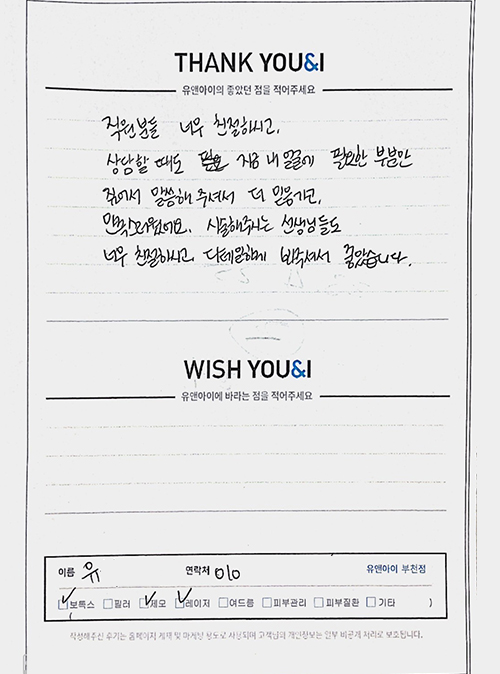 THANK YOU&I
유앤아이의 좋았던 점을 적어주세요
직원분들 너무 친절하시고,
상담할 때도 지금 내 얼굴에 필요한 부분만
집어서 말씀해 주셔서 더 믿음가고,
만족스러웠어요. 시술해주시는 선생님들도
너무 친절하시고 디테일하게 봐주셔서 좋았습니다.
WISH YOU&I
유앤아이에 바라는 점을 적어주세요
이름 유 연락처 010 유앤아이 부천점
보톡스 필러 제모 레이저 여드름 피부관리 피부질환 기타 )
작성해주신 후기는 홈페이지 게재 및 마케팅 용도로 사용되며 고객님의 개인정보는 일부 비공개 처리로 보호됩니다.